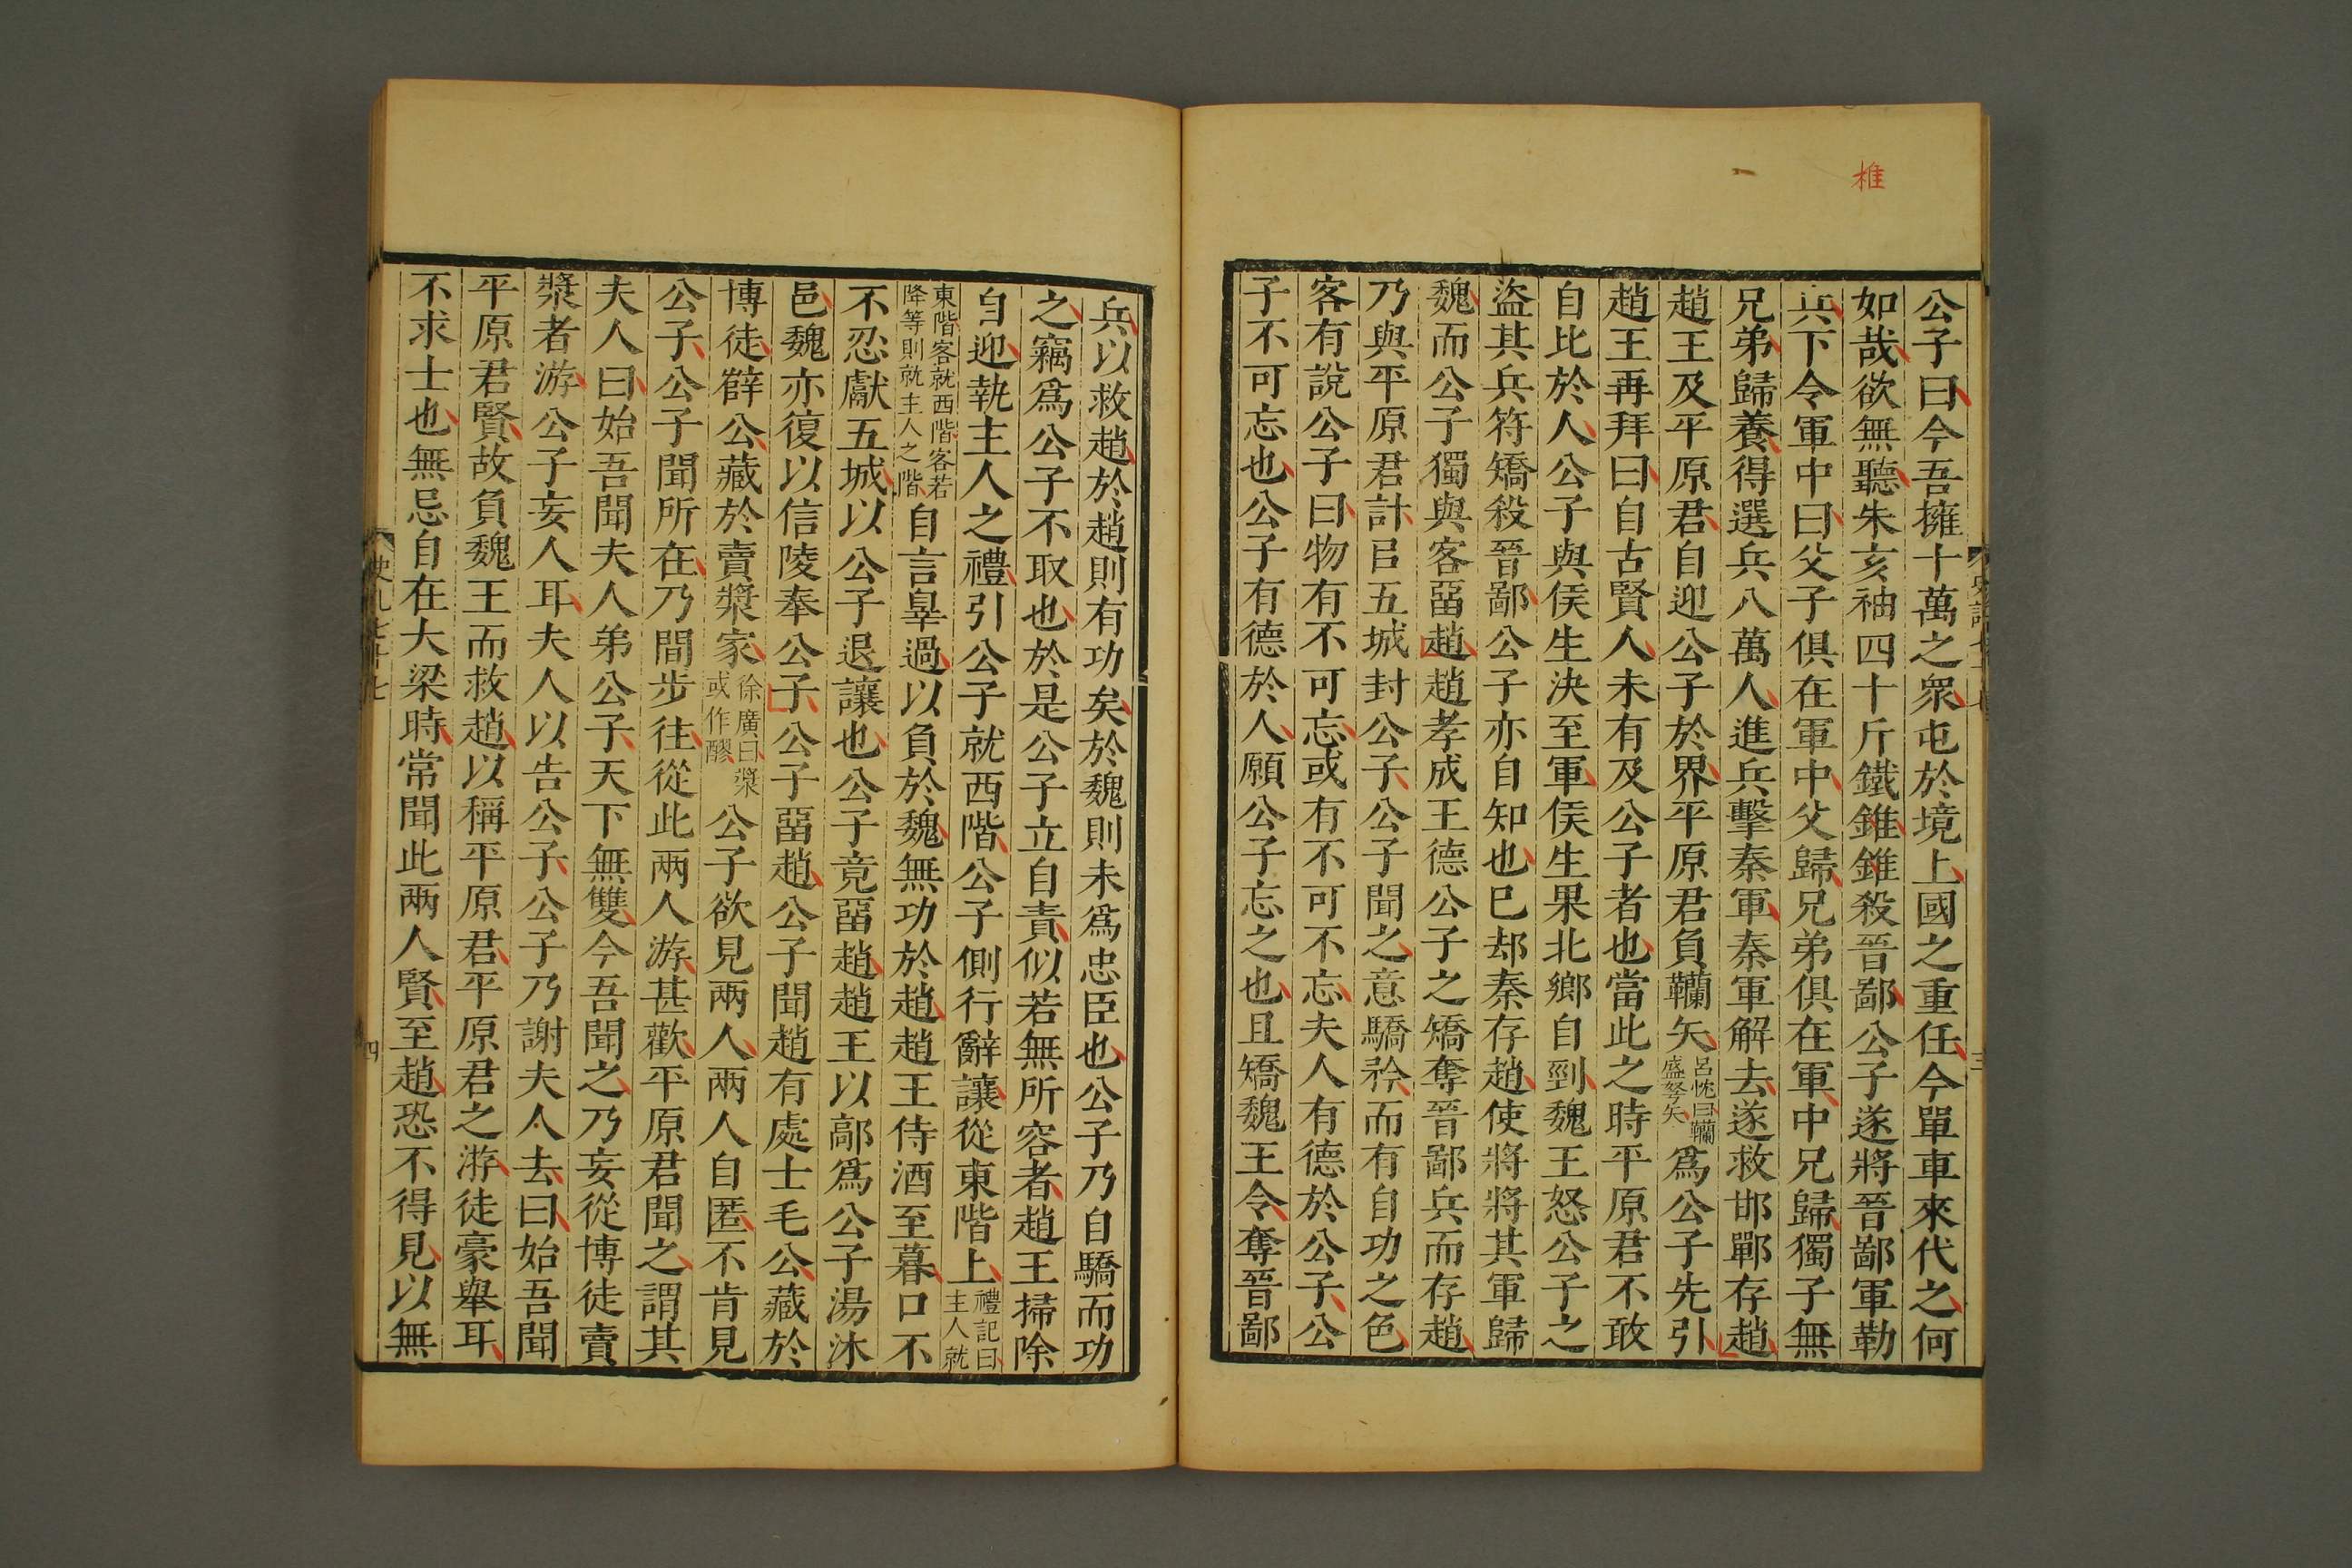 椎
公子曰今吾擁十萬之衆屯於境上國之重任今單車來代之何
如哉欲無聽朱亥袖四十斤鐵錐錐殺晉鄙公子遂將晉鄙軍勒
兵下令軍中曰父子俱在軍中父歸兄弟俱在軍中兄歸獨子無
兄弟歸養得選兵八萬人進兵擊秦軍秦軍解去遂救邯鄲存趙
趙王及平原君自迎公子於界平原君負韊矢呂忱曰韊盛弩矢爲公子先引
趙王再拜曰自古賢人未有及公子者也當此之時平原君不敢
自比於人公子與侯生決至軍侯生果北鄉自剄魏王怒公子之
盜其兵符矯殺晉鄙公子亦自知也已却秦存趙使將將其軍歸
魏而公子獨與客畱趙趙孝成王德公子之矯奪晉鄙兵而存趙
乃與平原君計㠯五城封公子公子聞之意驕矜而有自功之色
客有說公子曰物有不可忘或有不可不忘夫人有德於公子公
子不可忘也公子有德於人願公子忘之也且矯魏王令奪晉鄙
兵以救趙於趙則有功矣於魏則未爲忠臣也公子乃自驕而功
之竊爲公子不取也於是公子立自責似若無所容者趙王掃除
自迎執主人之禮引公子就西階公子側行辭讓從東階上禮記曰主人就
東階客就西階客若降等則就主人之階自言辠過以負於魏無功於趙趙王侍酒至暮口不
不忍獻五城以公子退讓也公子竟畱趙趙王以鄗爲公子湯沐
邑魏亦復以信陵奉公子公子畱趙公子聞趙有處士毛公藏於
博徒薛公藏於賣漿家徐廣曰漿或作醪公子欲見兩人兩人自匿不肯見
公子公子聞所在乃間步往從此兩人游甚歡平原君聞之謂其
夫人曰始吾聞夫人弟公子天下無雙今吾聞之乃妄從博徒賣
漿者游公子妄人耳夫人以告公子公子乃謝夫人去曰始吾聞
平原君賢故負魏王而救趙以稱平原君平原君之游徒豪舉耳
不求士也無忌自在大梁時常聞此兩人賢至趙恐不得見以無
四